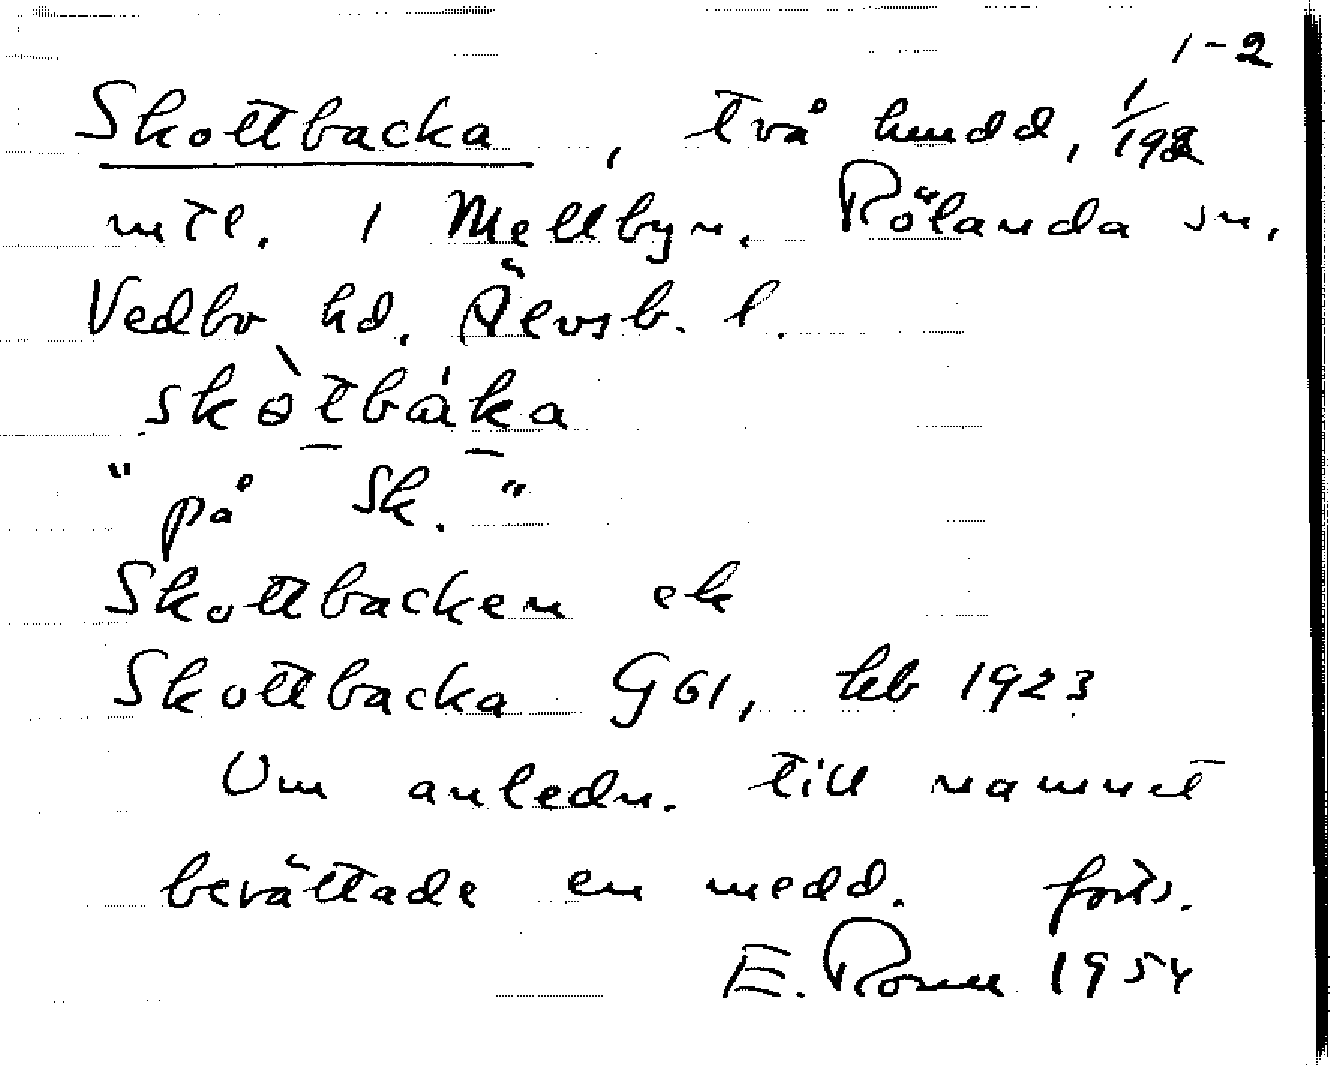 1-2
Skottbacka, två hmdd, 1/192
mtl. i Mellbyn. Rölanda sn,
Vedbo hd, Älvsb. l.
skòtbáka
"på Sk."
Skottbacken ek
Skottbacka G61, hlb 1923
Om anledn. till namnet
berättade en medd. forts.
E. Rome 1954